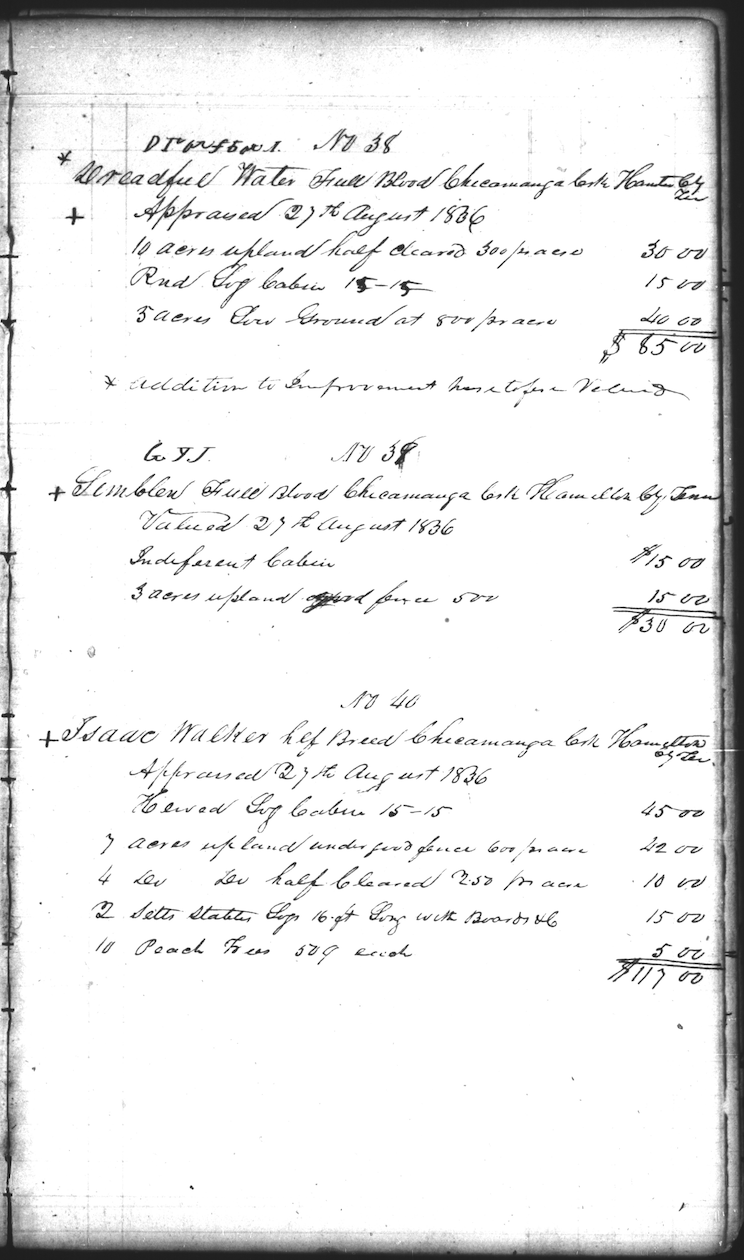 No 38
* Dreadful Water Full Blood Chicamauga Crk Hamtn Cty Ten
+ Appraised 27th August 1836
10 acres upland half cleared 300 pr acre 30 00
Rnd Log Cabin 15-15 15 00
5 acres Low Ground at 800 pr acre 40 00
$ 85 00
* Addition to Improvement heretofore Valued
No 39
+ Full Blood Chicamauga Crk Hamilton Cty Tenn
Valued 27th August 1836
Indeferent Cabin $15 00
3 acres upland good fence 500 15 00
$30 00
No 40
+ Isaac Walker hlf Breed Chicamauga Crk Hamilton Cty Ten.
Appraised 27th August 1836
Hewed Log Cabin 15-15 45 00
7 acres upland under good fence 600 pr acre 42 00
4 Do Do half Cleared 2.50 pr acre 10 00
2 Setts Logs 16 ft Long with Boards &c 15 00
10 Peach Trees 50¢ each 5 00
$117 00